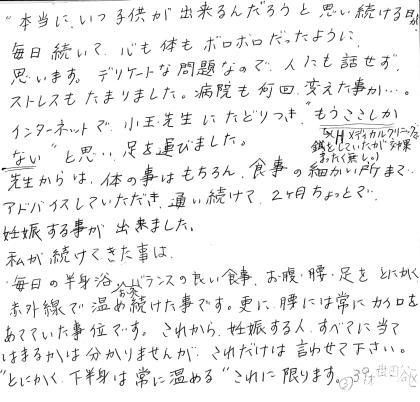 "本当に、いつ子供が出来るんだろうと思い続ける日が
毎日続いて、心も体もボロボロだったように
思います。デリケートな問題なので、人にも話せず、
ストレスもたまりました。病院も何回変えた事か…。
インターネットで小玉先生にたどりつき、"もうここしか
ない"と思い、足を運びました。
メディカルクリニックで
鍼をしていたが効果
まったく無し。)
先生からは、体の事はもちろん、食事の細かい所まで
アドバイスしていただき、通い続けて、2ヶ月ちょっとで、
妊娠する事が出来ました。
私が続けてきた事は、
・毎日の半身浴、バランスの良い食事、お腹・腰・足をとにかく
お灸
赤外線で温め続けた事です。更に、腰には常にカイロを
あてていた事位です。これから、妊娠する人、すべてに当て
はまるかは分かりませんが、これだけは言わせて下さい。
"とにかく、下半身は常に温める"これに限ります。
39才 世田谷区